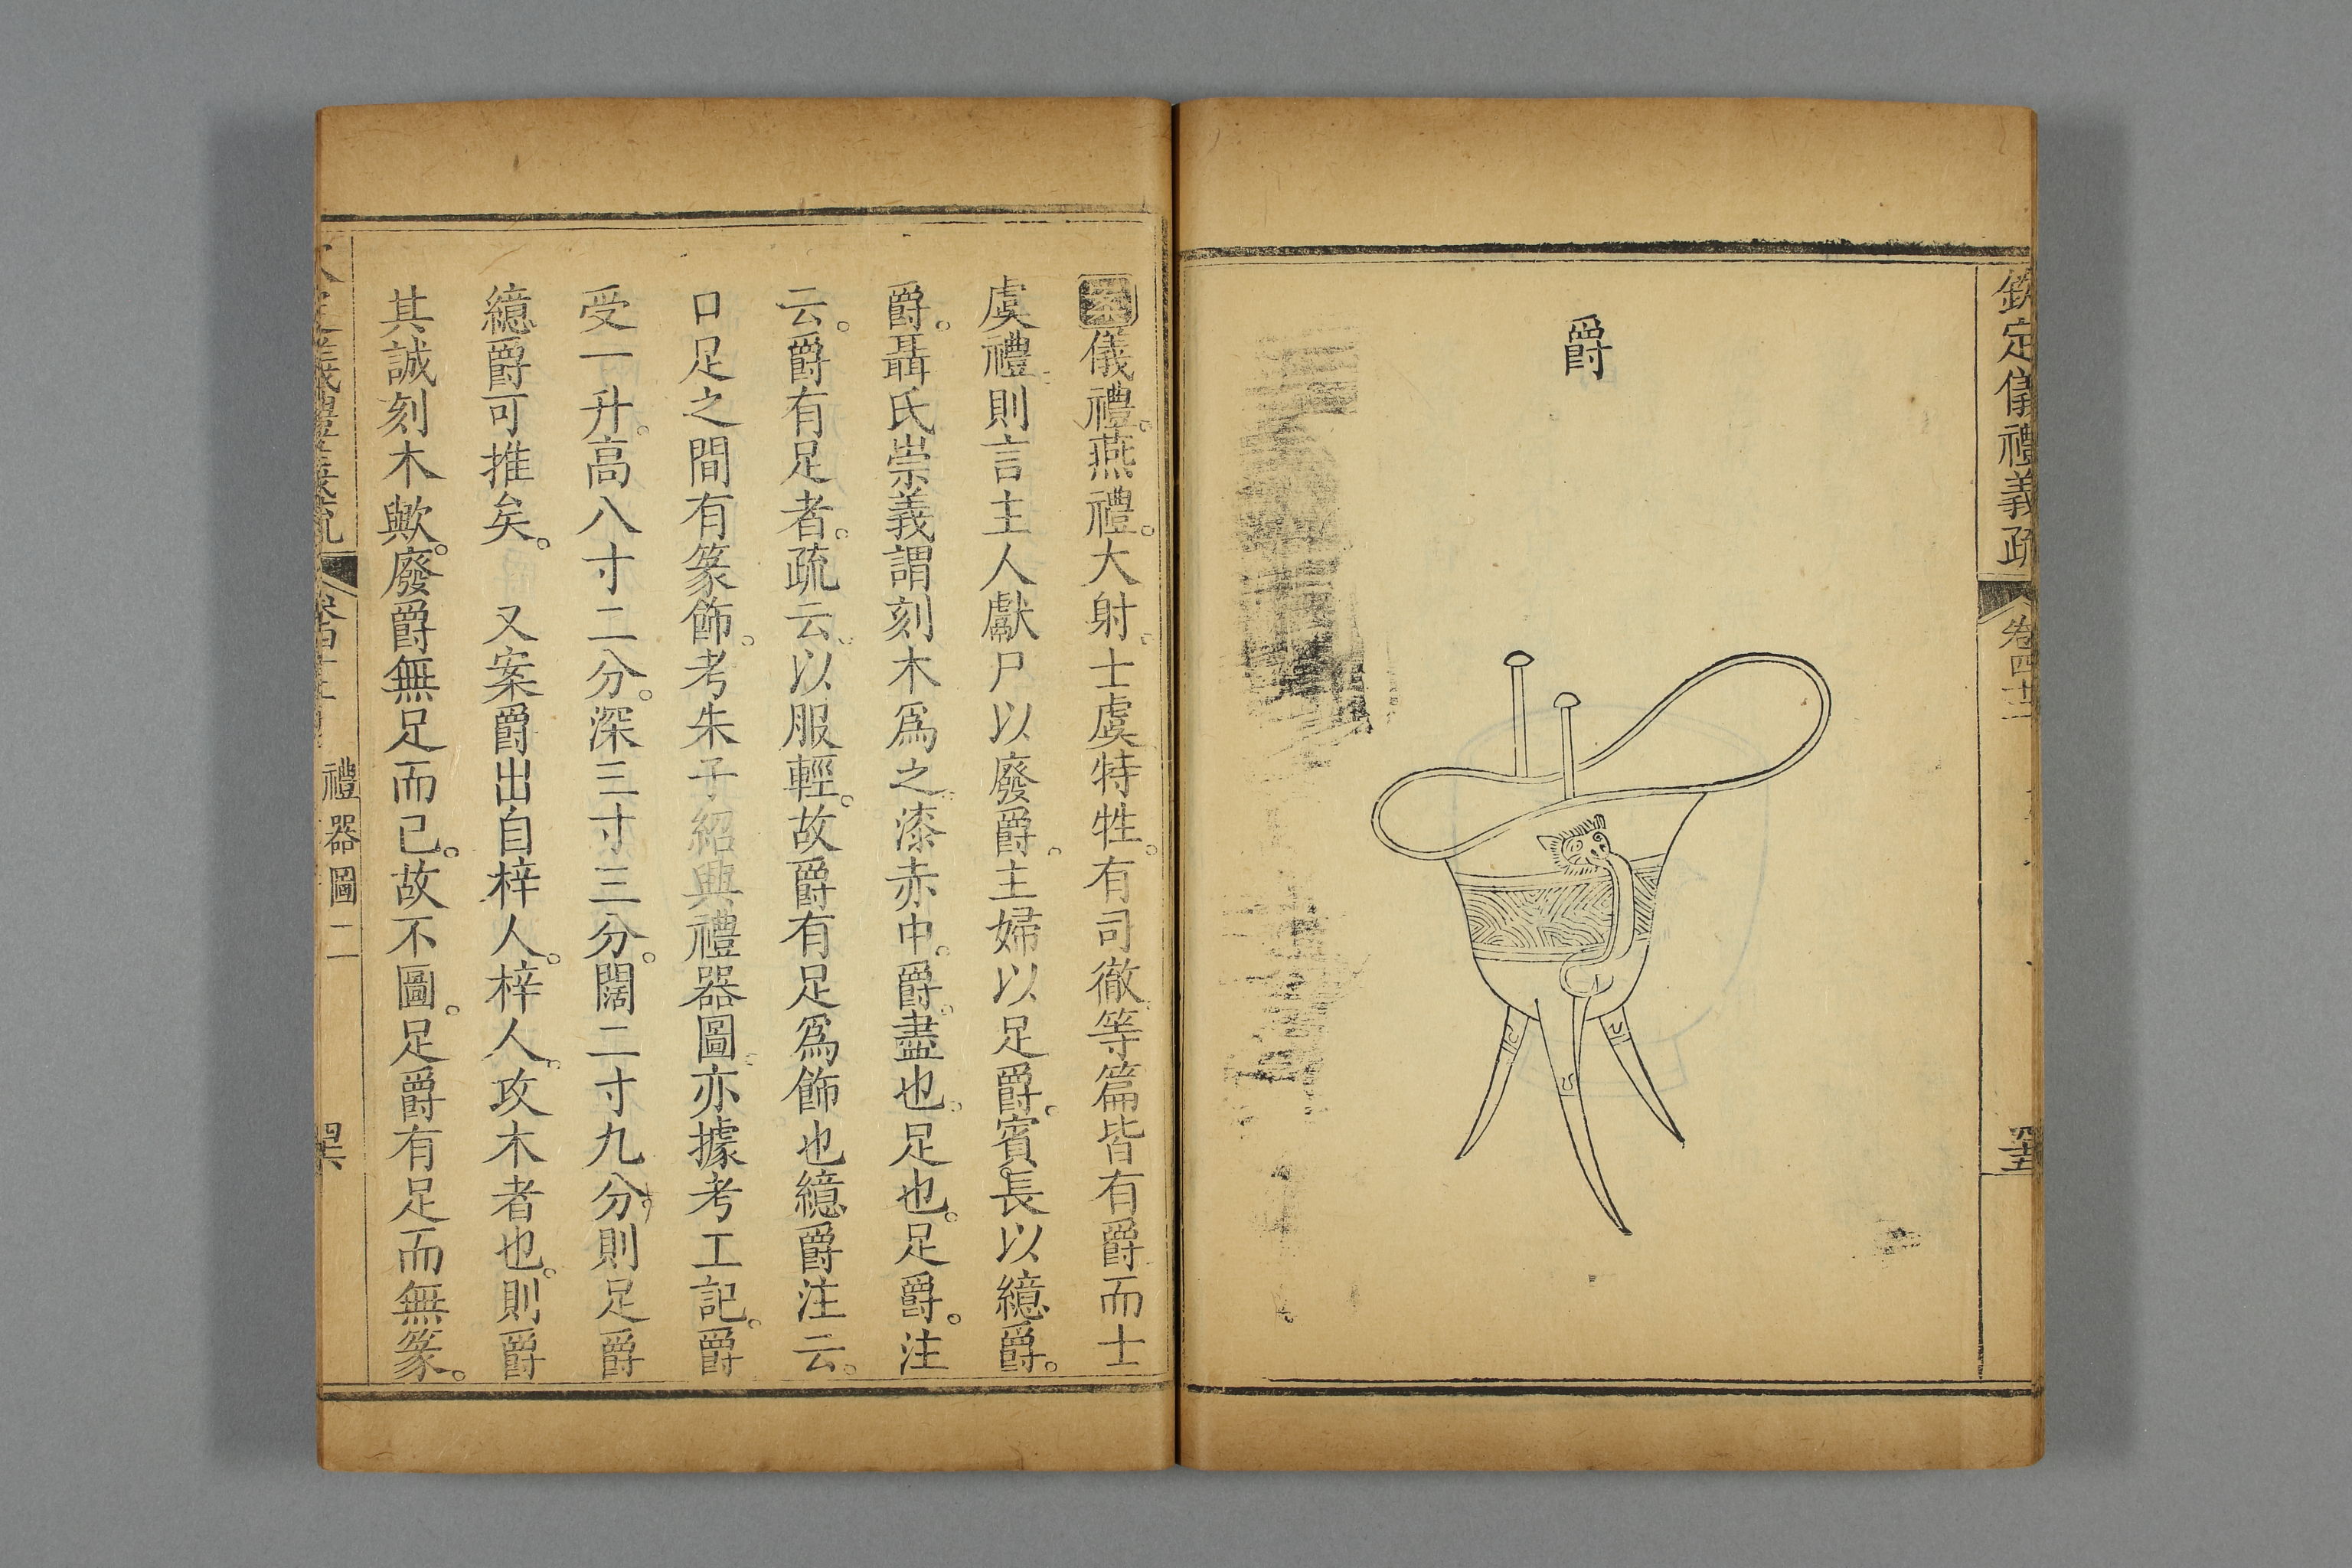 欽定儀禮義疏
卷四十二
爵
案儀禮。燕禮。大射。士虞特牲。有司徹等篇皆有爵而士
虞禮則言主人獻尸以廢爵。主婦以足爵。賓長以繶爵。
爵。聶氏崇義謂刻木爲之。漆赤中。爵。盡也。足也。足爵。注
云。爵有足者。疏云。以服輕。故爵有足爲飾也繶爵注云。
口足之間有篆飾。考朱子紹興禮器圖。亦據考工記。爵
受一升。高八寸二分。深三寸三分。闊二寸九分。則足爵
繶爵可推矣。　又案爵出自梓人。梓人。攻木者也。則爵
其誠刻木歟。廢爵無足而已。故不圖。足爵有足而無篆。
禮器圖二